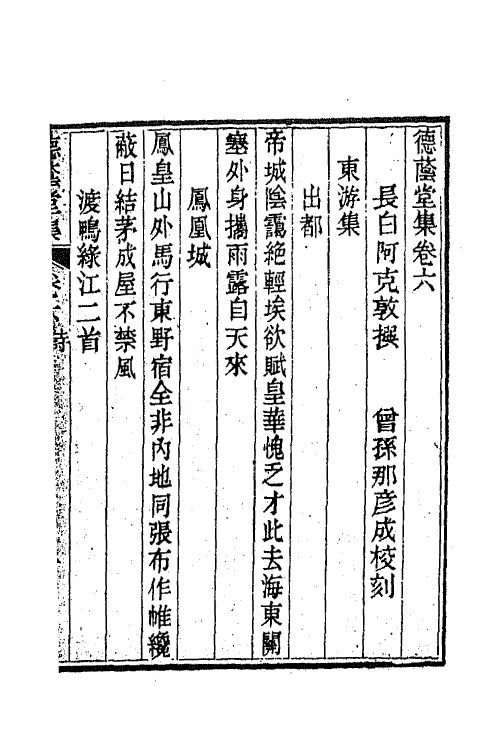 德蔭堂集卷六
長白阿克敦撰　曾孫那彥成校刻
東游集
出都
帝城陰靄絕輕埃欲賦皇華愧乏才此去海東關
塞外身攜雨露自天來
鳳凰城
鳳皇山外馬行東野宿全非內地同張布作帷纔
蔽日結茅成屋不禁風
渡鴨綠江二首